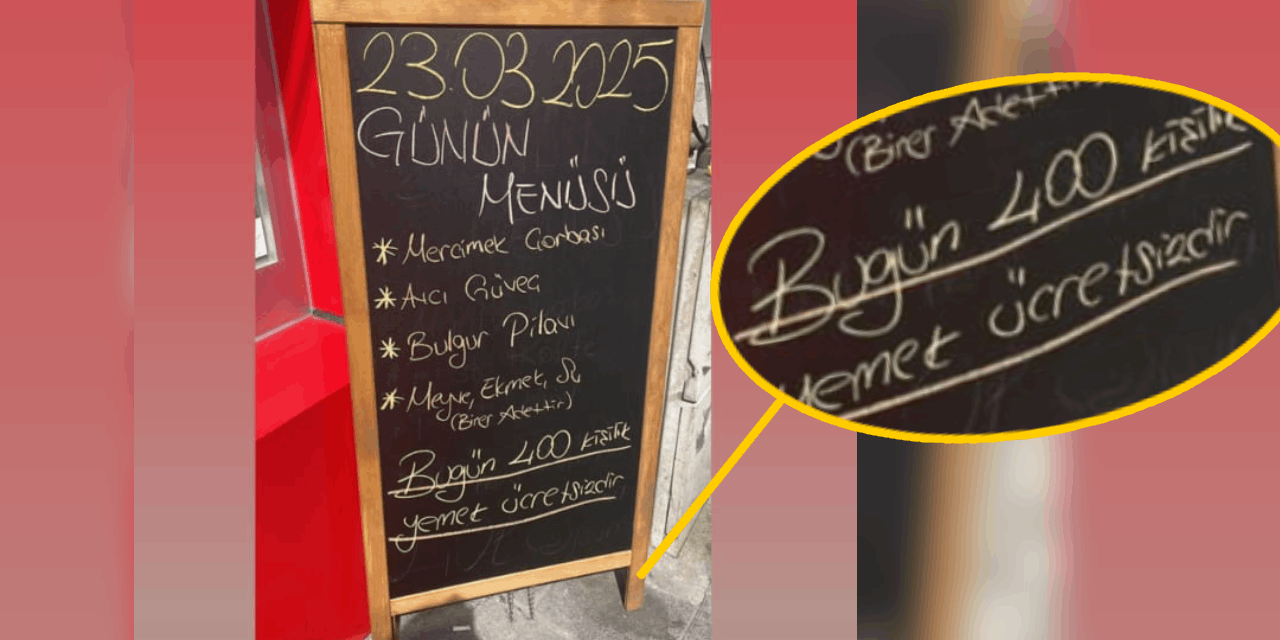 23.03.2025
GÜNÜN
MENÜSÜ
* Mercimek Çorbası
* Avcı Güveç
* Bulgur Pilavı
* Meyve, Ekmek, Su
(Birer Adettir)
Bugün 400 kişilik
yemek ücretsizdir
(Birer Adettir)
Bugün 400 kişilik
yemek ücretsizdir